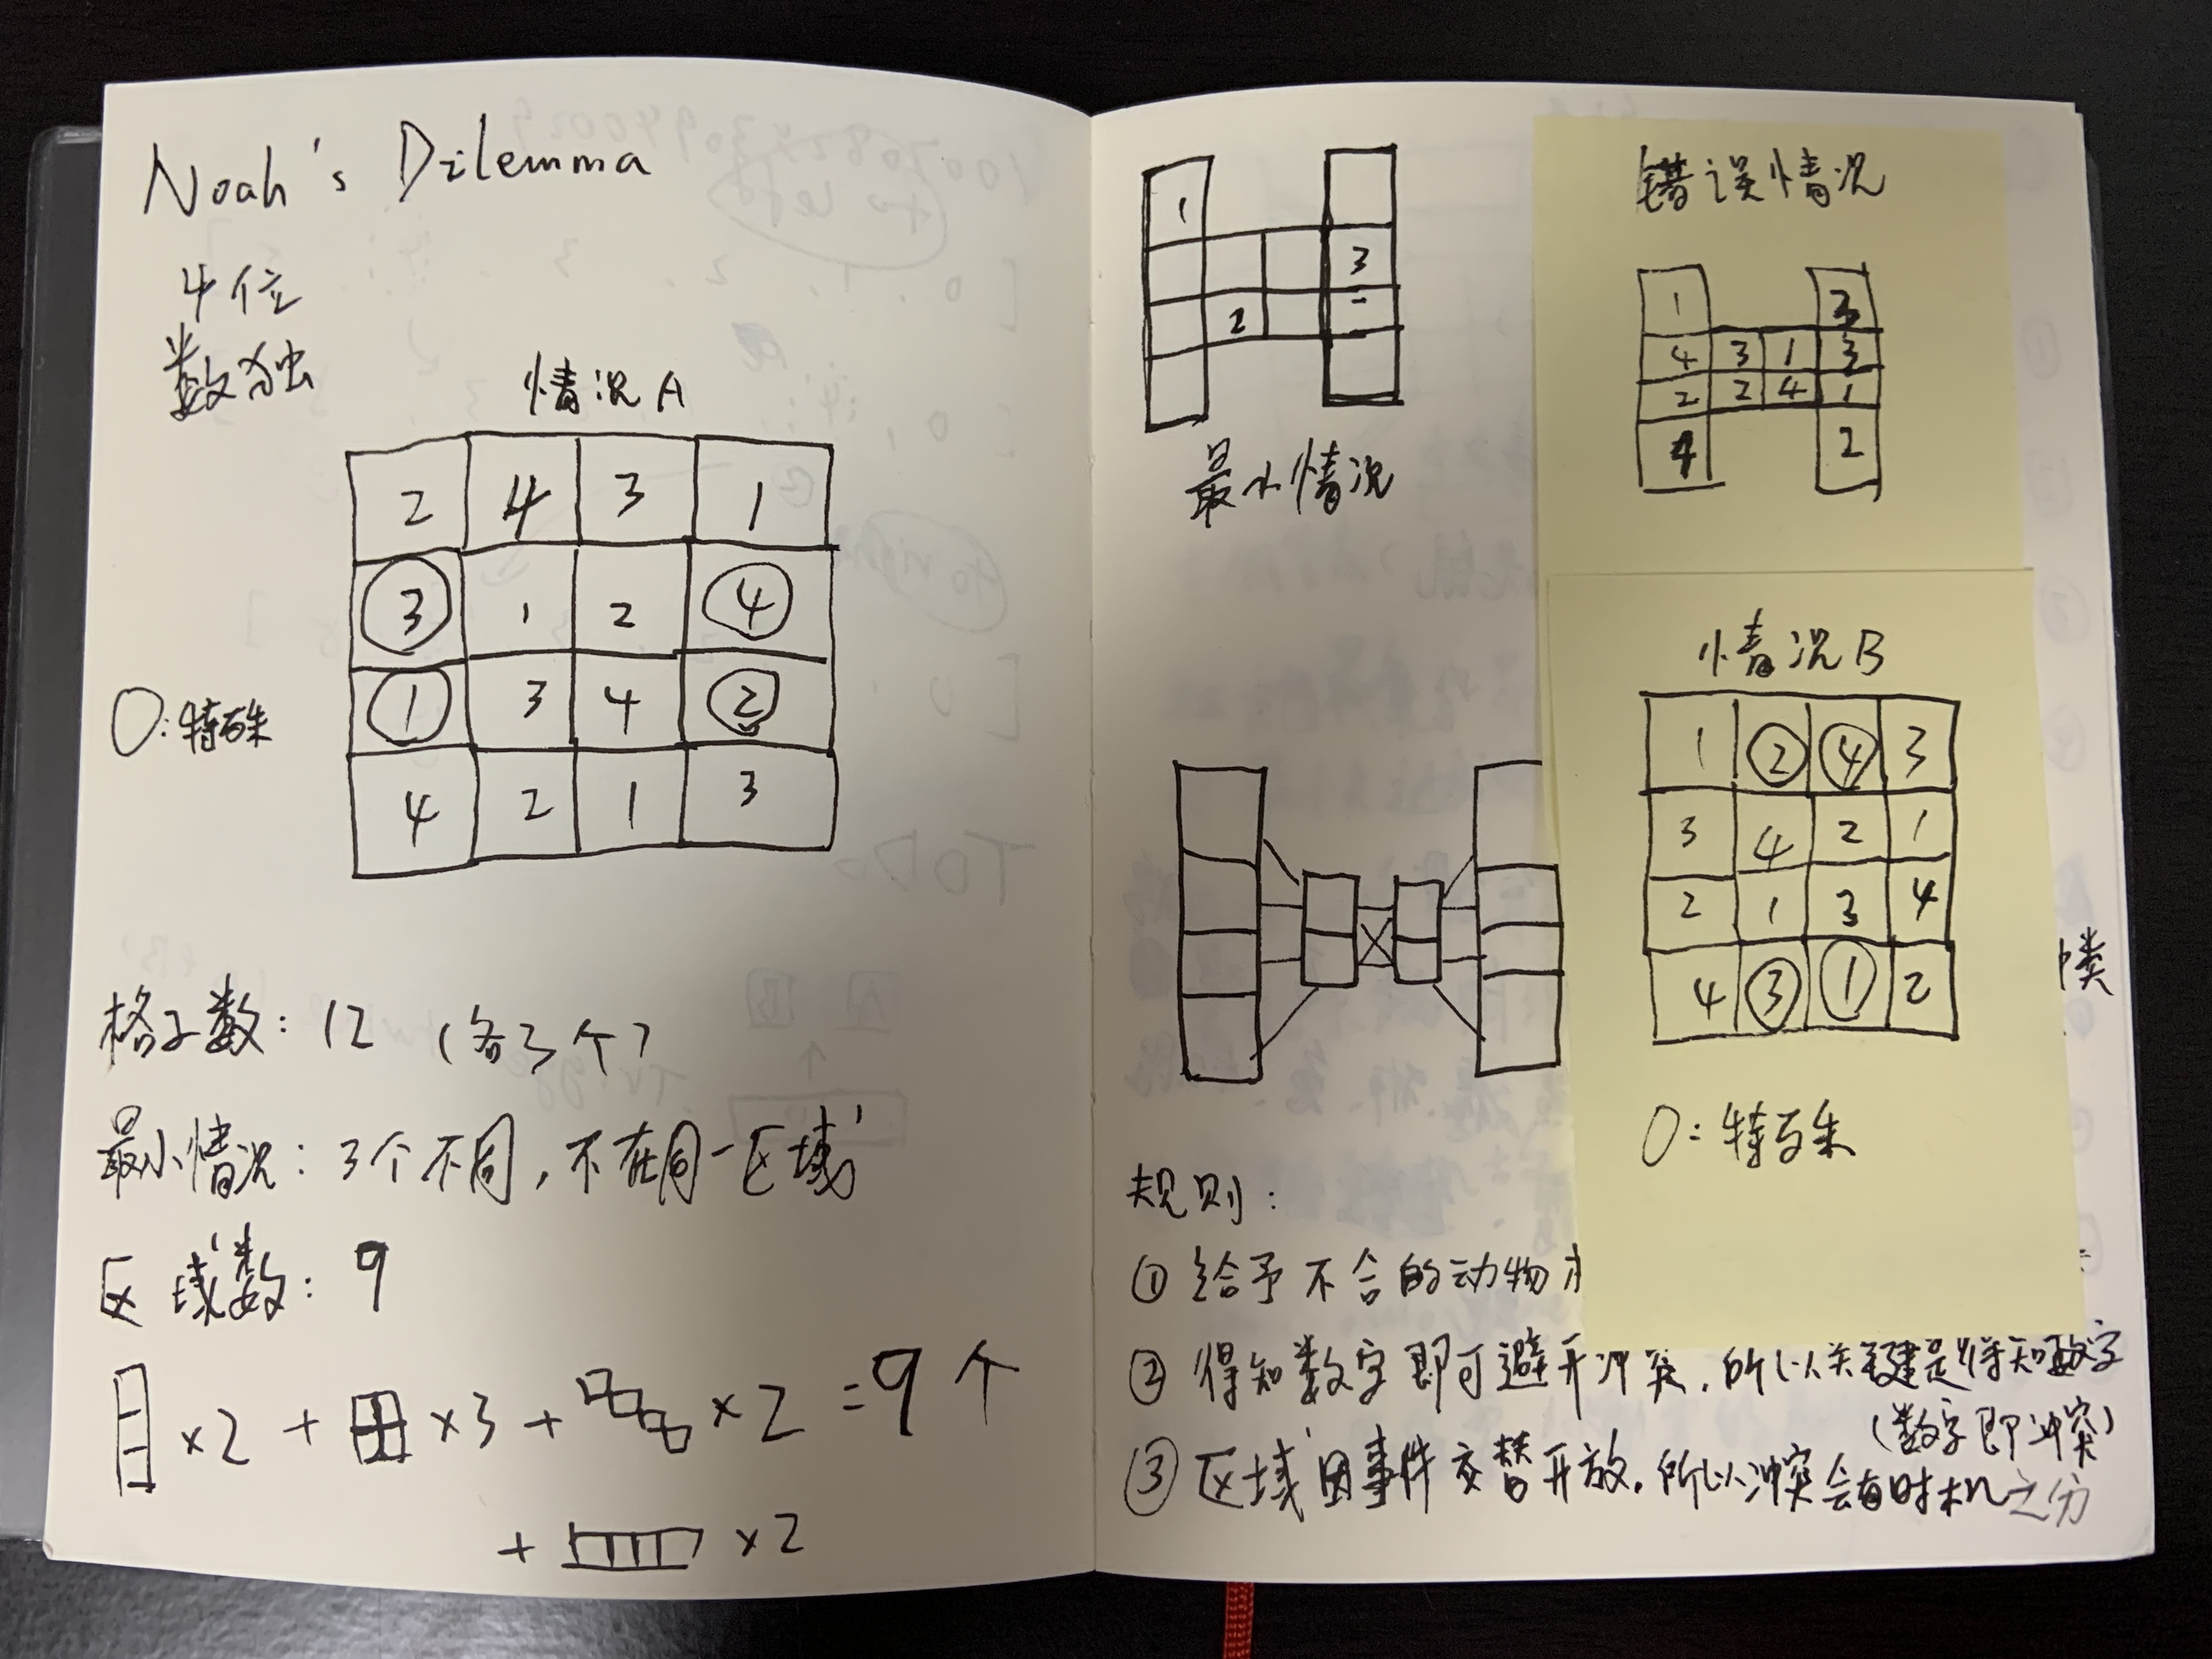 Noah's Dilemma
4位
数独
情况A
2 4 3 1
③ 1 2 ④
① 3 4 ②
4 2 1 3
O:特殊
格子数: 12 (各3个)
最小情况: 3个不同,不在同一区域
区域数: 9
×2 + ×3 + ×2 = 9个
+ ×2
1
3
2
最小情况
规则:
① 给予不合的动物
② 得知数字即可避开冲突,所以关键是得知数字
(数字即冲突)
③ 区域因事件交替开放,所以冲突会有时机之分
错误情况
1 3
4 3 1 3
2 2 4 1
4 2
情况B
1 ② ④ 3
3 4 2 1
2 1 3 4
4 ③ ① 2
O:特殊
类